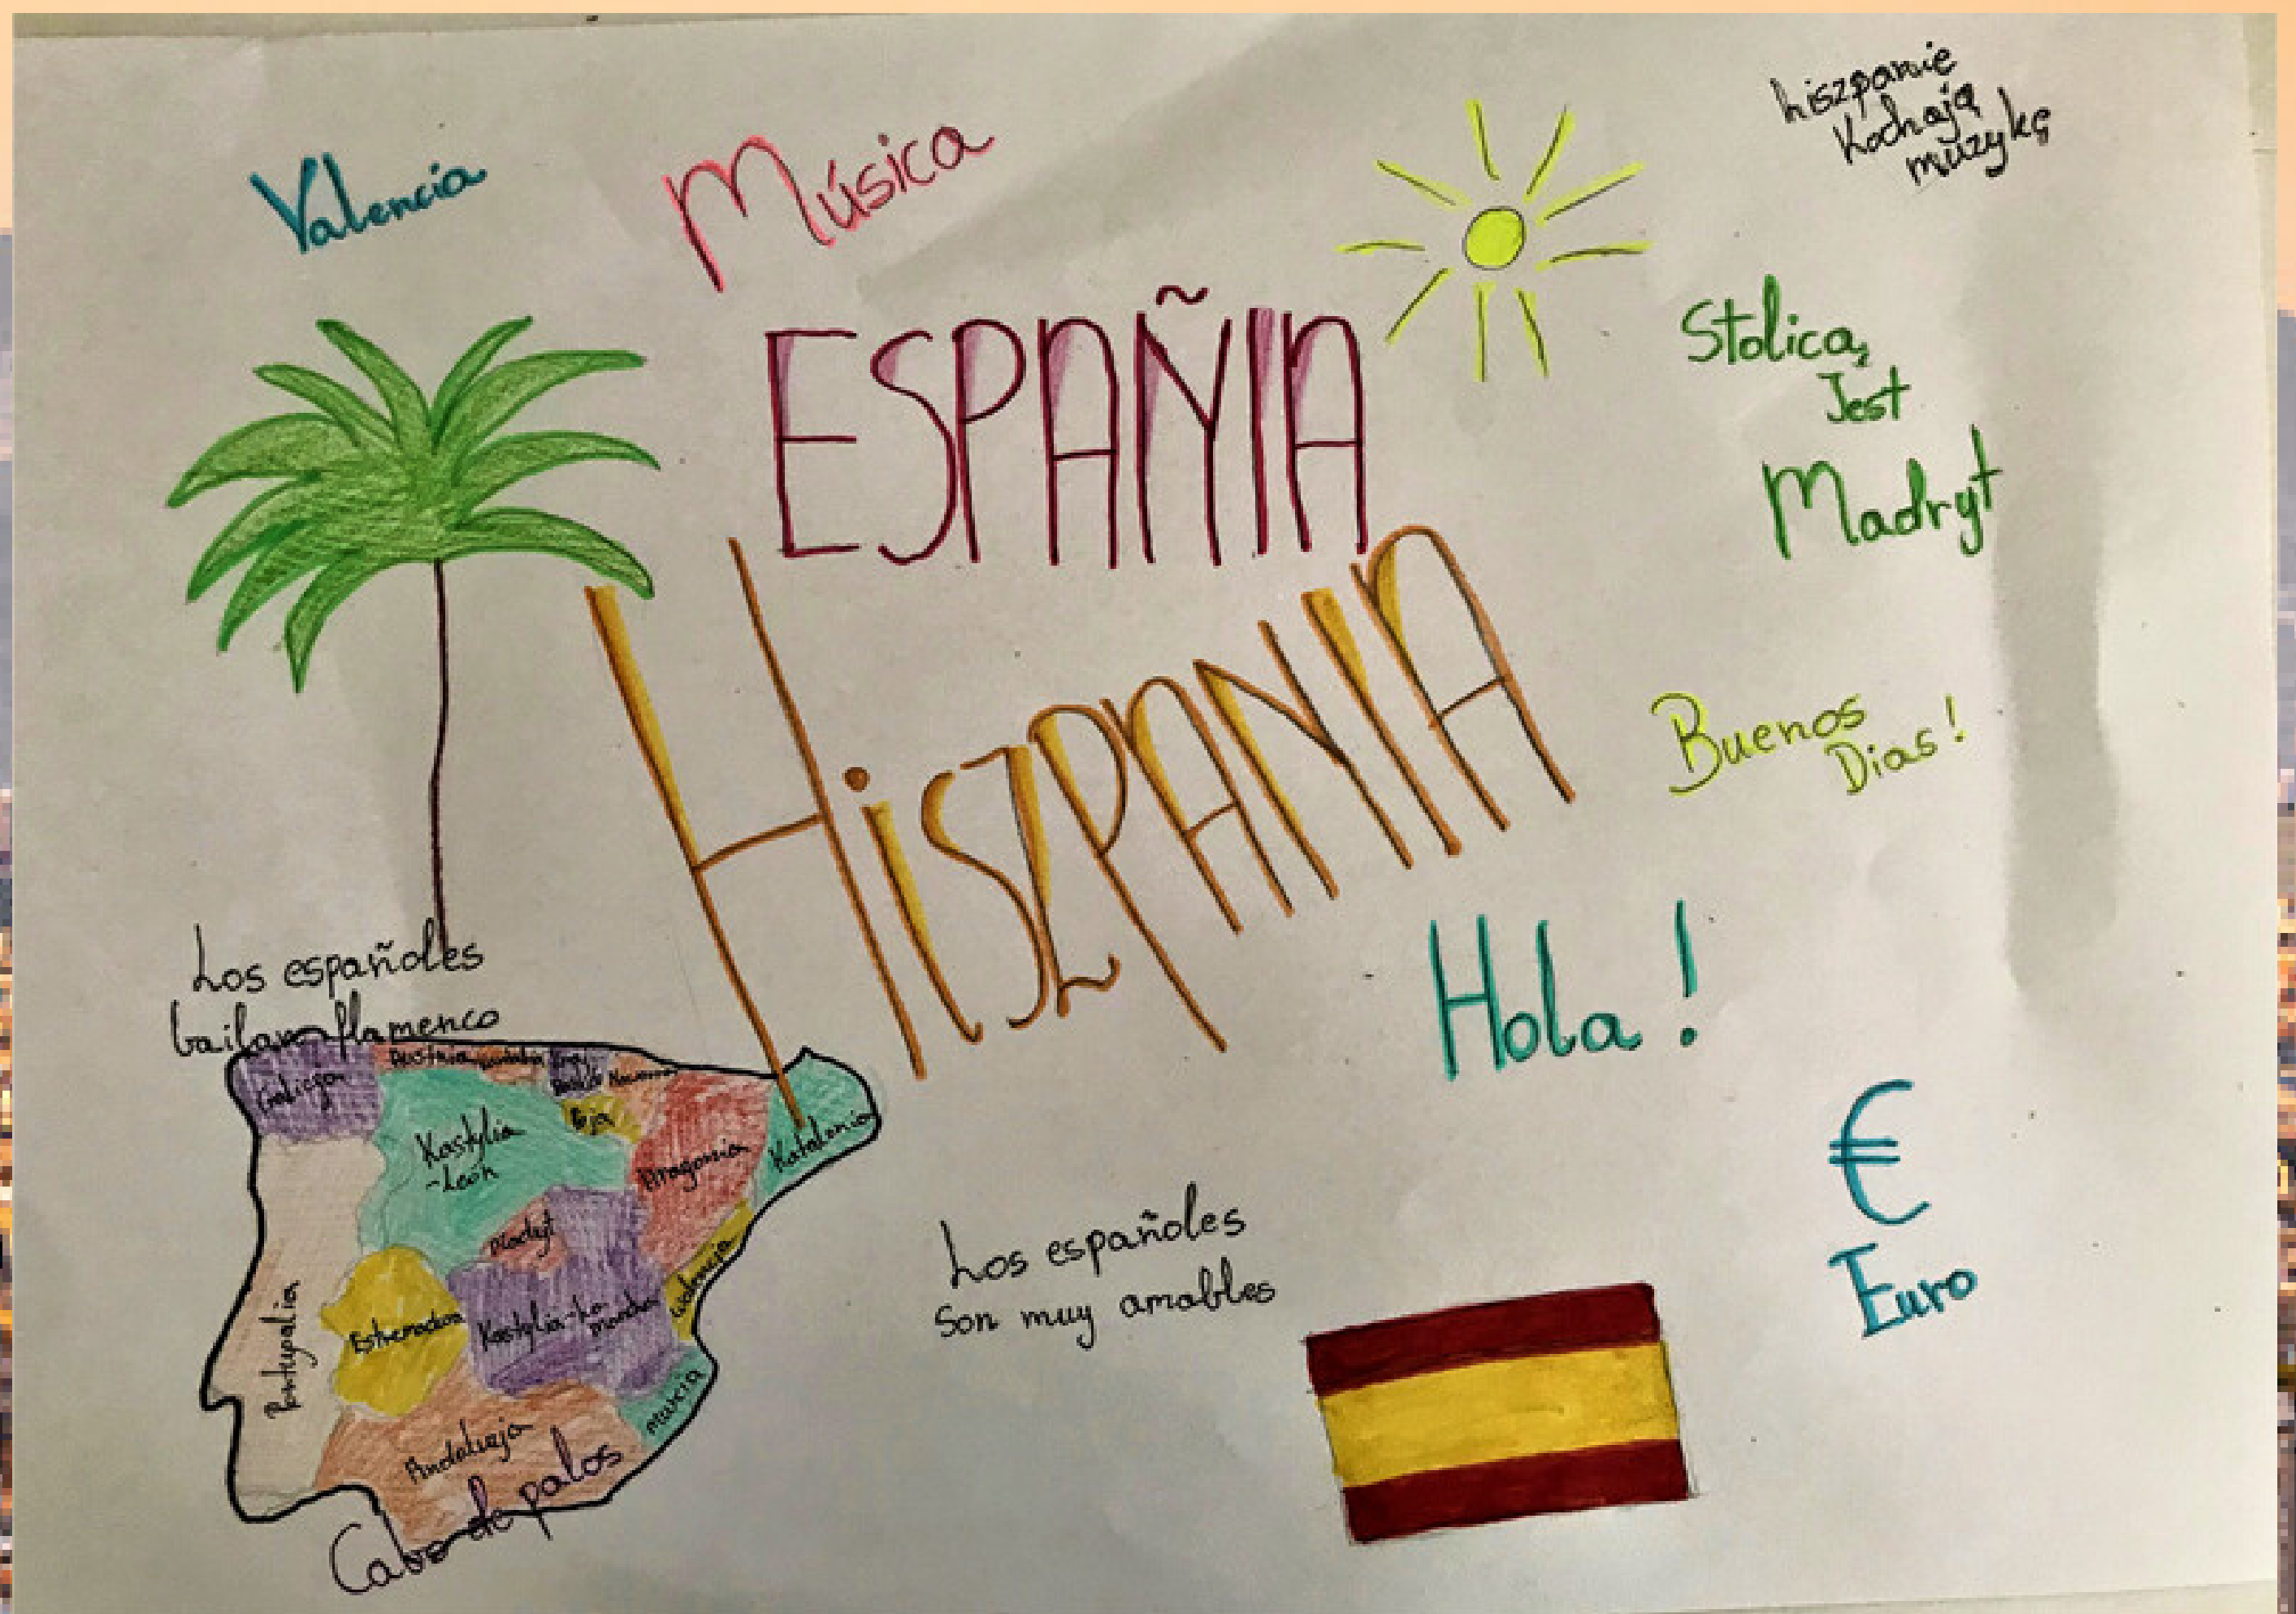 Valencia
Música
hiszpanie
kochają
muzykę
ESPAÑIA
Stolicą
Jest
Madryt
HiSZPANIA
Buenos
Dias!
Hola!
Los españoles
bailan flamenco
Galicja
Kastylia
-León
Aragonia
Katalonia
Madryt
Walencja
Portugalia
Estremadura
Kastylia-La
mancha
Murcia
Andaluzja
Cabo de palos
Los españoles
son muy amables
€
Euro